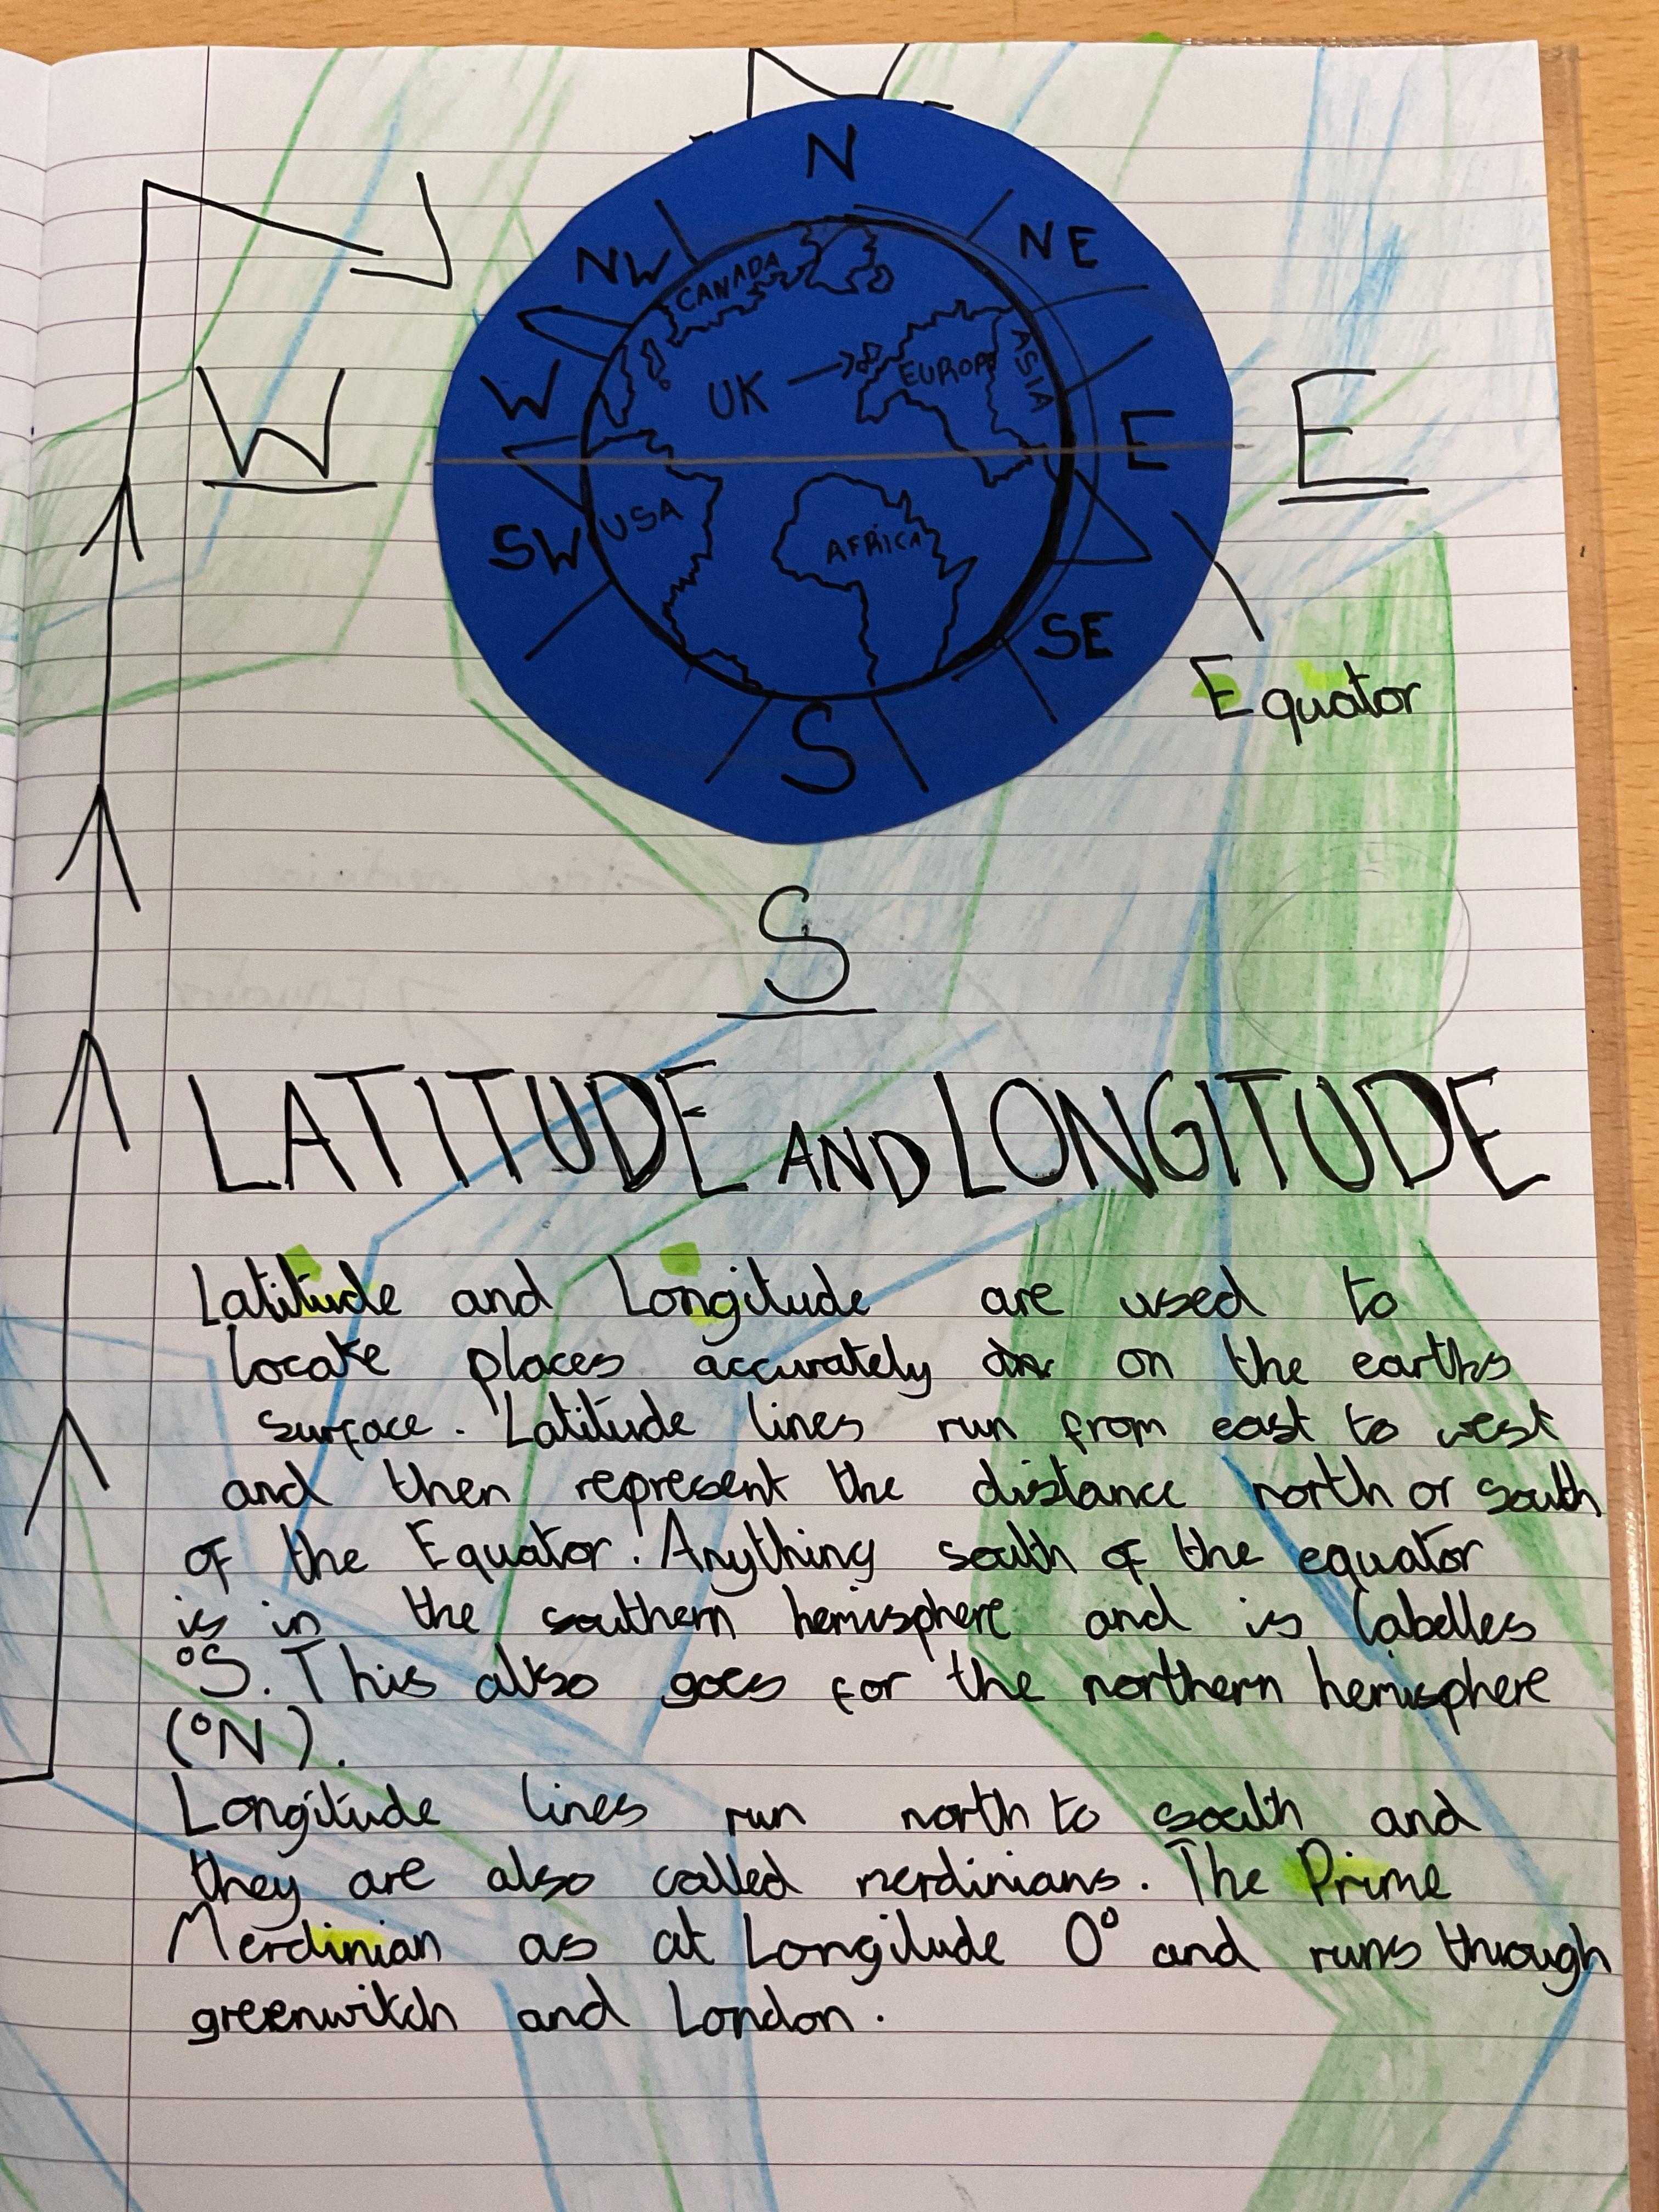 N
N
NW
NE
CANADA
W
W
UK
EUROPE
ASIA
E
E
SW
USA
AFRICA
SE
Equator
S
S
LATITUDE AND LONGITUDE
Latitude and Longitude are used to
locate places accurately on the earths
surface. Latitude lines run from east to west
and then represent the distance north or south
of the Equator. Anything south of the equator
is in the southern hemisphere and is labelles
°S. This also goes for the northern hemisphere
(°N).
Longitude lines run north to south and
they are also called merdinians. The Prime
Merdinian as at Longitude 0° and runs through
greenwitch and London.